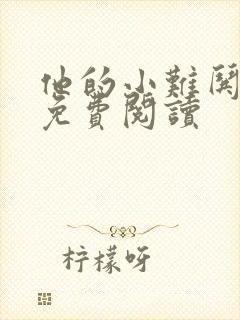 他的小難關
免費閱讀
柠檬呀